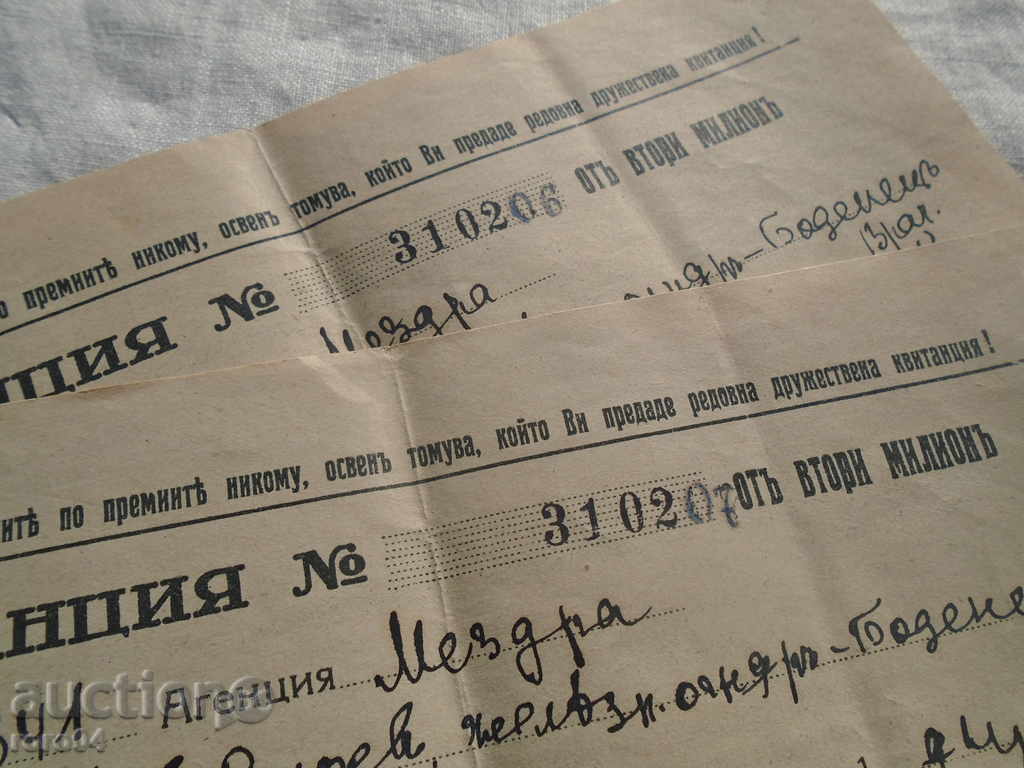 по премиитѣ никому, освенъ томува, който Ви предаде редовна дружествена квитанция!
ЦИЯ № 310206 отъ втори милионъ
Мездра
ондр-Боденецъ
Врач.
ите по премиитѣ никому, освенъ томува, който Ви предаде редовна дружествена квитанция!
НЦИЯ № 310207 отъ втори милионъ
941 Агенция Мездра
железн. ондръ-Бодене
auction
retro94